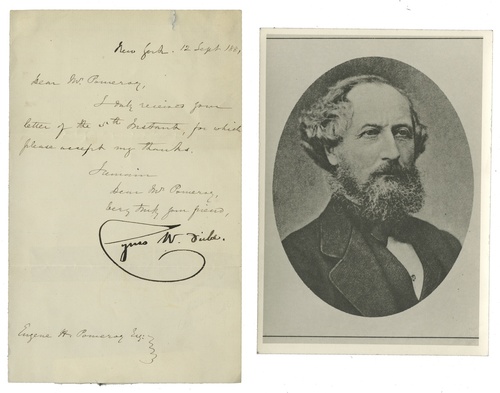 New York. 12 Sept 1881
Dear Mr Pomeroy,
I duly received your
letter of the 5th Instant, for which
please accept my thanks.
I remain
Dear Mr Pomeroy,
Very truly your friend,
Cyrus W. Field.
Eugene H. Pomeroy Esq: